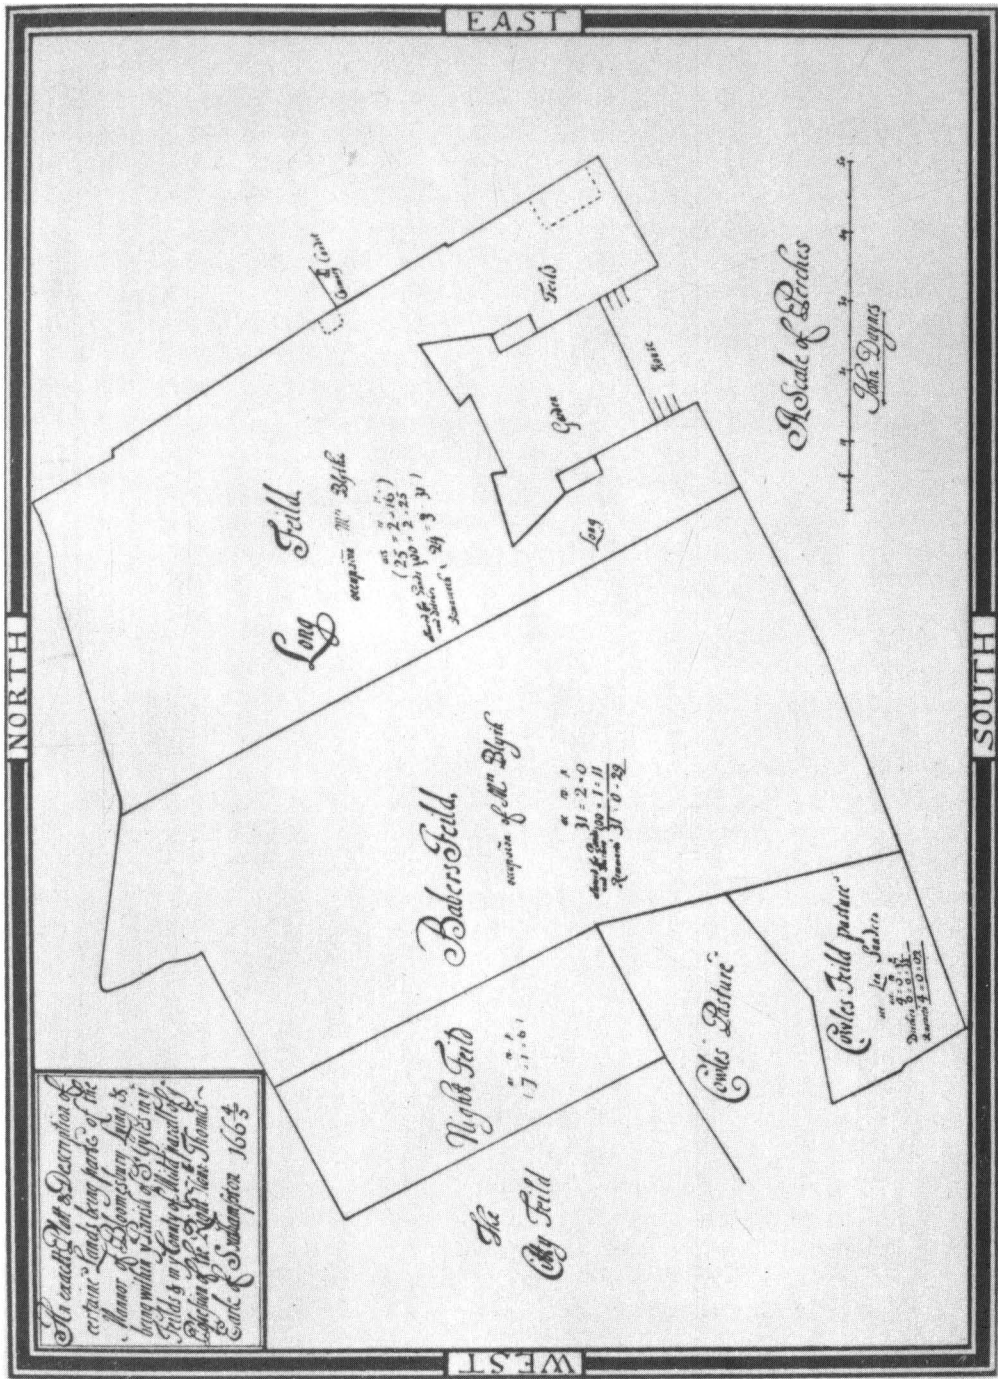 EAST
NORTH
SOUTH
WEST
An exact Platt & Description of
certaine Lands being parte of the
Manor of Bloomsbury Lying &
being within yͤ Parish of Sͭ Gyles in yͤ
Feilds & in yͤ County of Midd parcell of yͤ
of the Right Honᵒ Thomas
Earle of Southampton 166⅘
Long Feild.
occupation Mrs Blyth.
25 = 2 = 16
00 = 2 = 25
24 = 3 = 31
Feild
Garden
House
Long
Babers Feild.
occupation of Mrs Blyth
31 = 2 = 0
00 = 1 = 11
Remaines 31 = 0 = 29
Night Feild
17 = 1 = 6
The
Citty Feild
Cowles Pasture
Cowles Feild pasture
4 = 0 = 02
A Scale of Perches
John Daynes